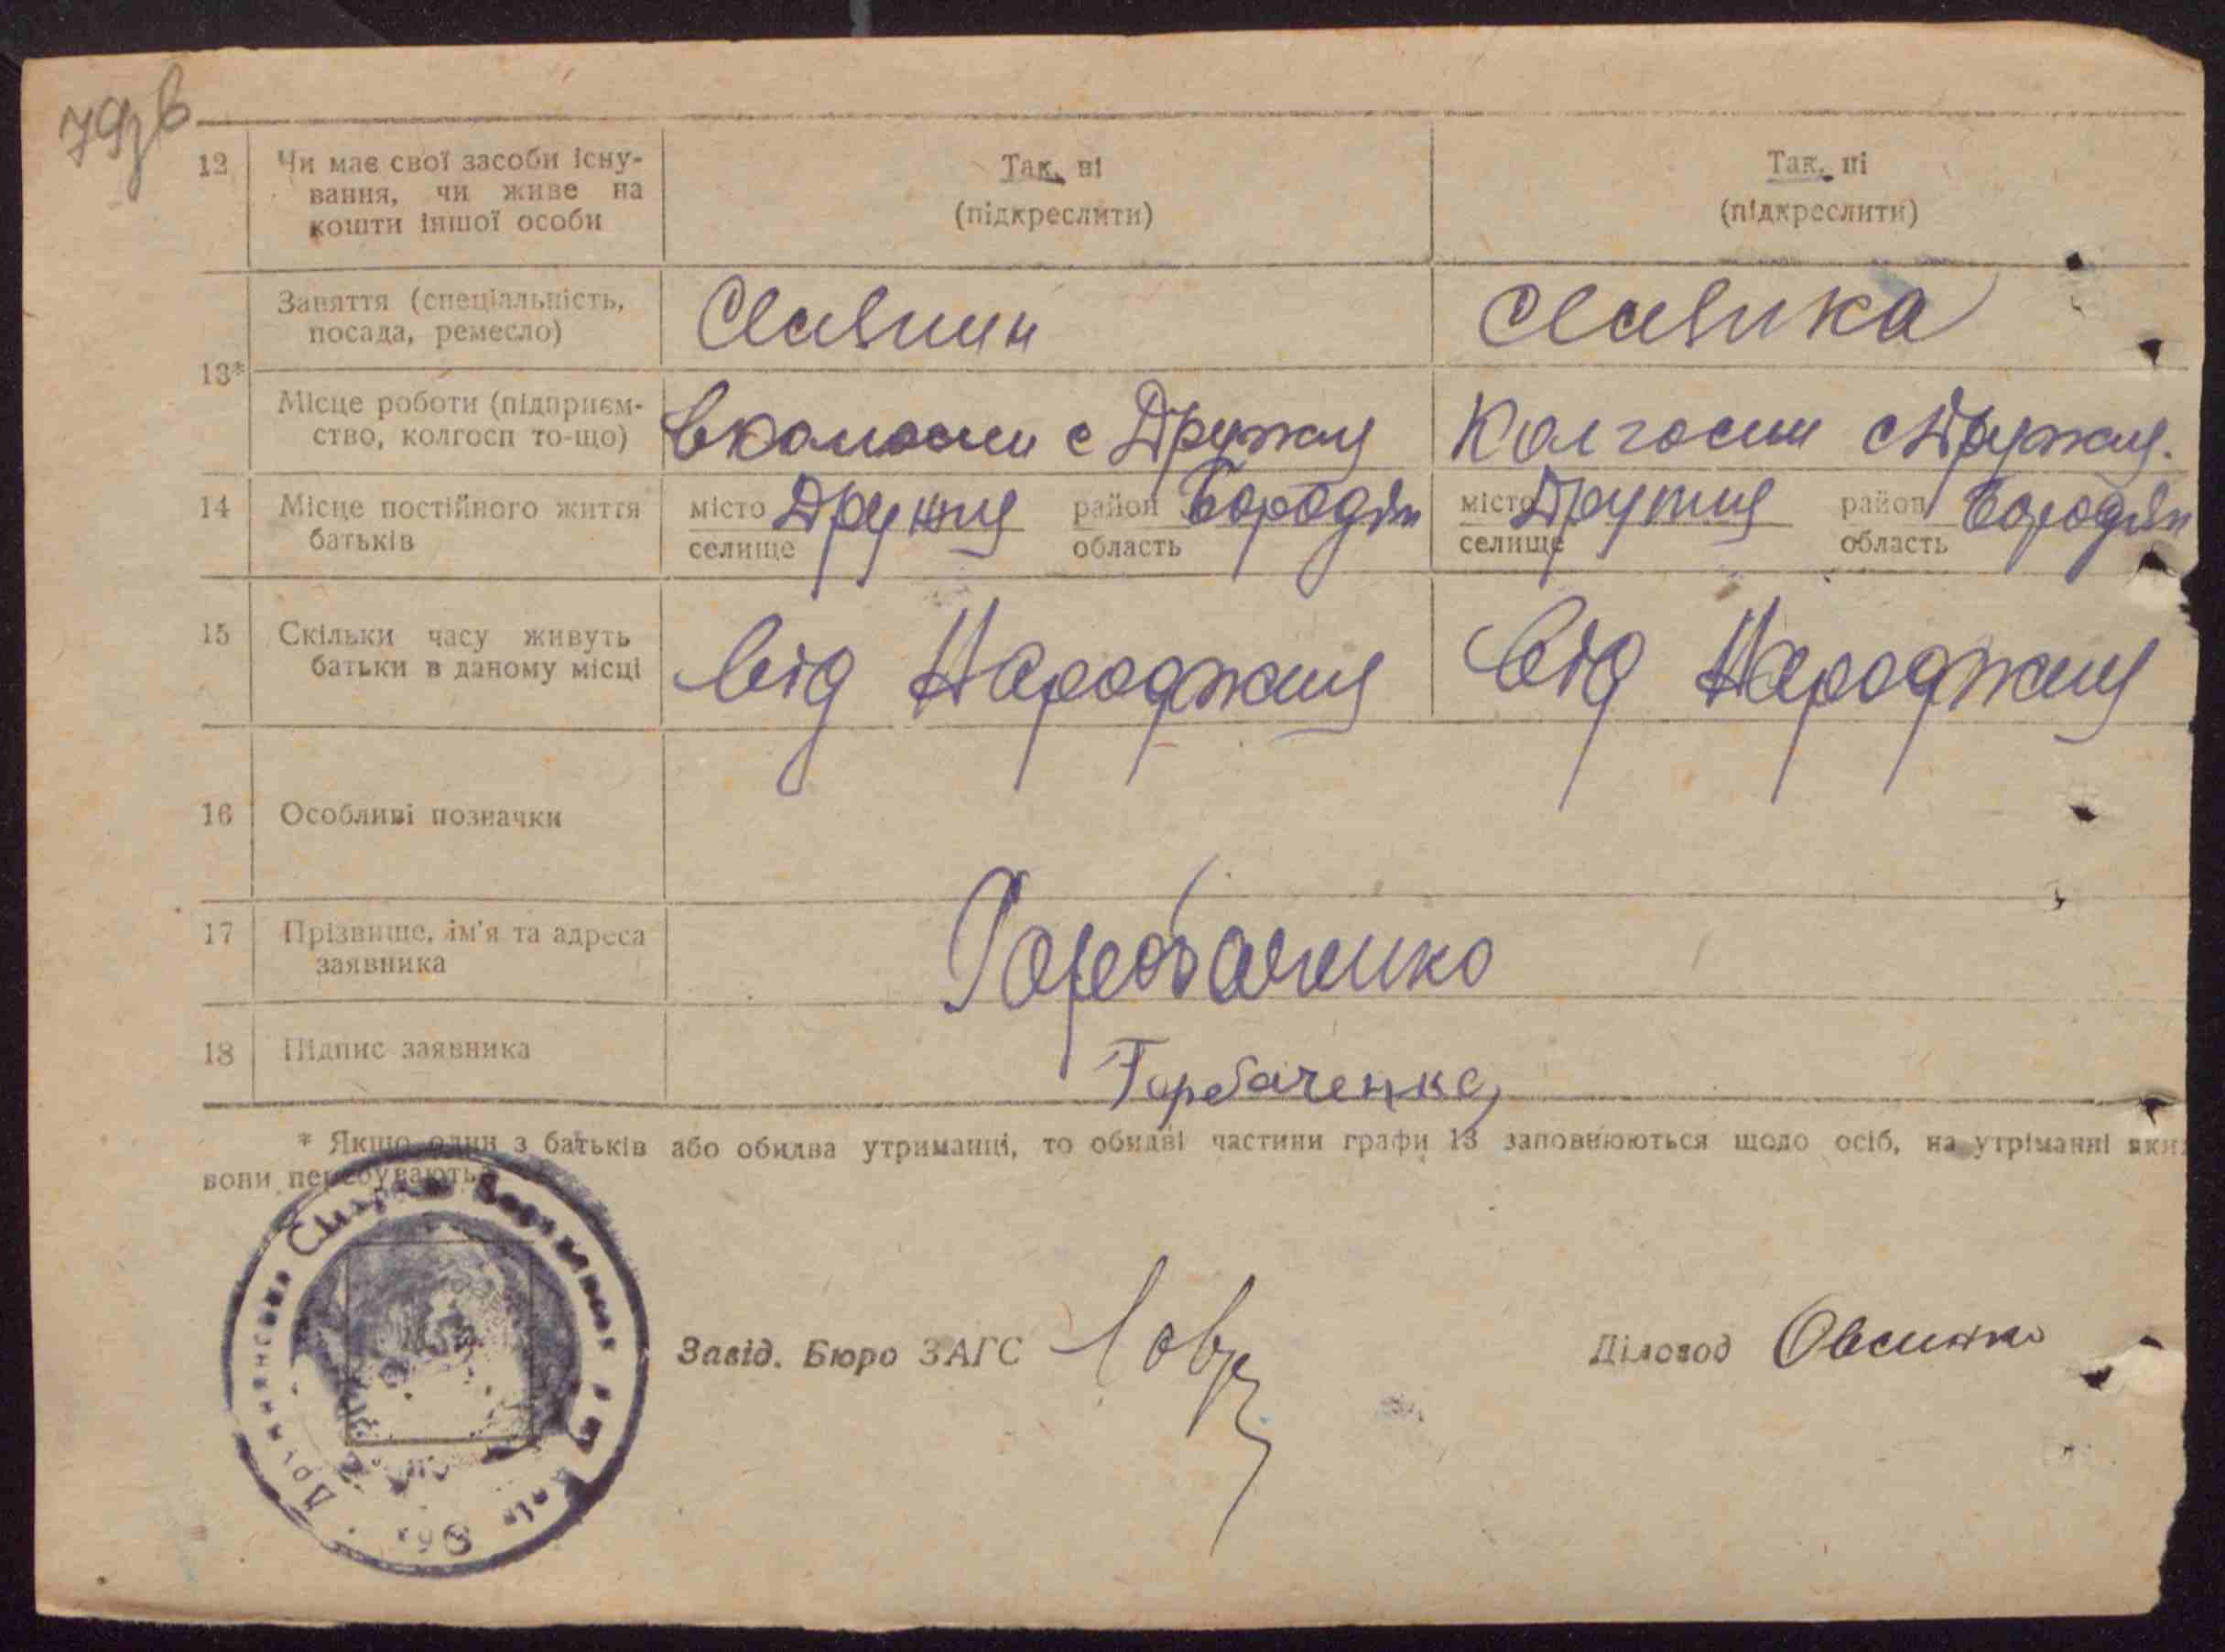 79зв
12 Чи має свої засоби існу-
вання, чи живе на
кошти іншої особи
Так, ні
(підкреслити)
Так, ні
(підкреслити)
13*
Заняття (спеціальність,
посада, ремесло)
Місце роботи (підприєм-
ство, колгосп то-що)
с Дружня
Колгоспи с Дружня.
14 Місце постійного життя
батьків
місто Дружня район Бородян
селище область
місто Дружня район Бородян
селище область
15 Скільки часу живуть
батьки в даному місці
від Народжання
від Народжання
16 Особливі позначки
17 Прізвище, ім'я та адреса
заявника
Горбаченко
18 Підпис заявника
Горбаченко
* Якщо один з батьків або обидва утриманці, то обидві частини графи 13 заповнюються щодо осіб, на утріманні яких
вони перебувають.
Завід. Бюро ЗАГС
Діловод